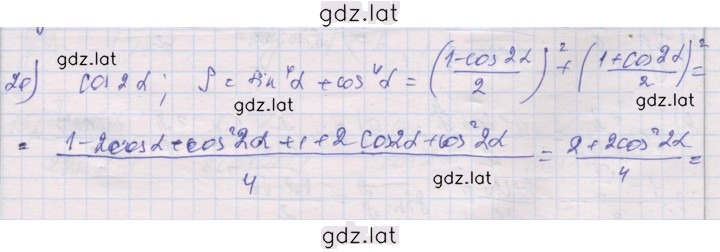 gdz.lat
gdz.lat
cos2α; S = sin⁴α + cos⁴α = ((1-cos2α)/2)² + ((1+cos2α)/2)² =
gdz.lat gdz.lat
= (1-2cosα+cos²2α+1+2cos2α+cos²2α)/4 = (2+2cos²2α)/4 =
gdz.lat
gdz.lat